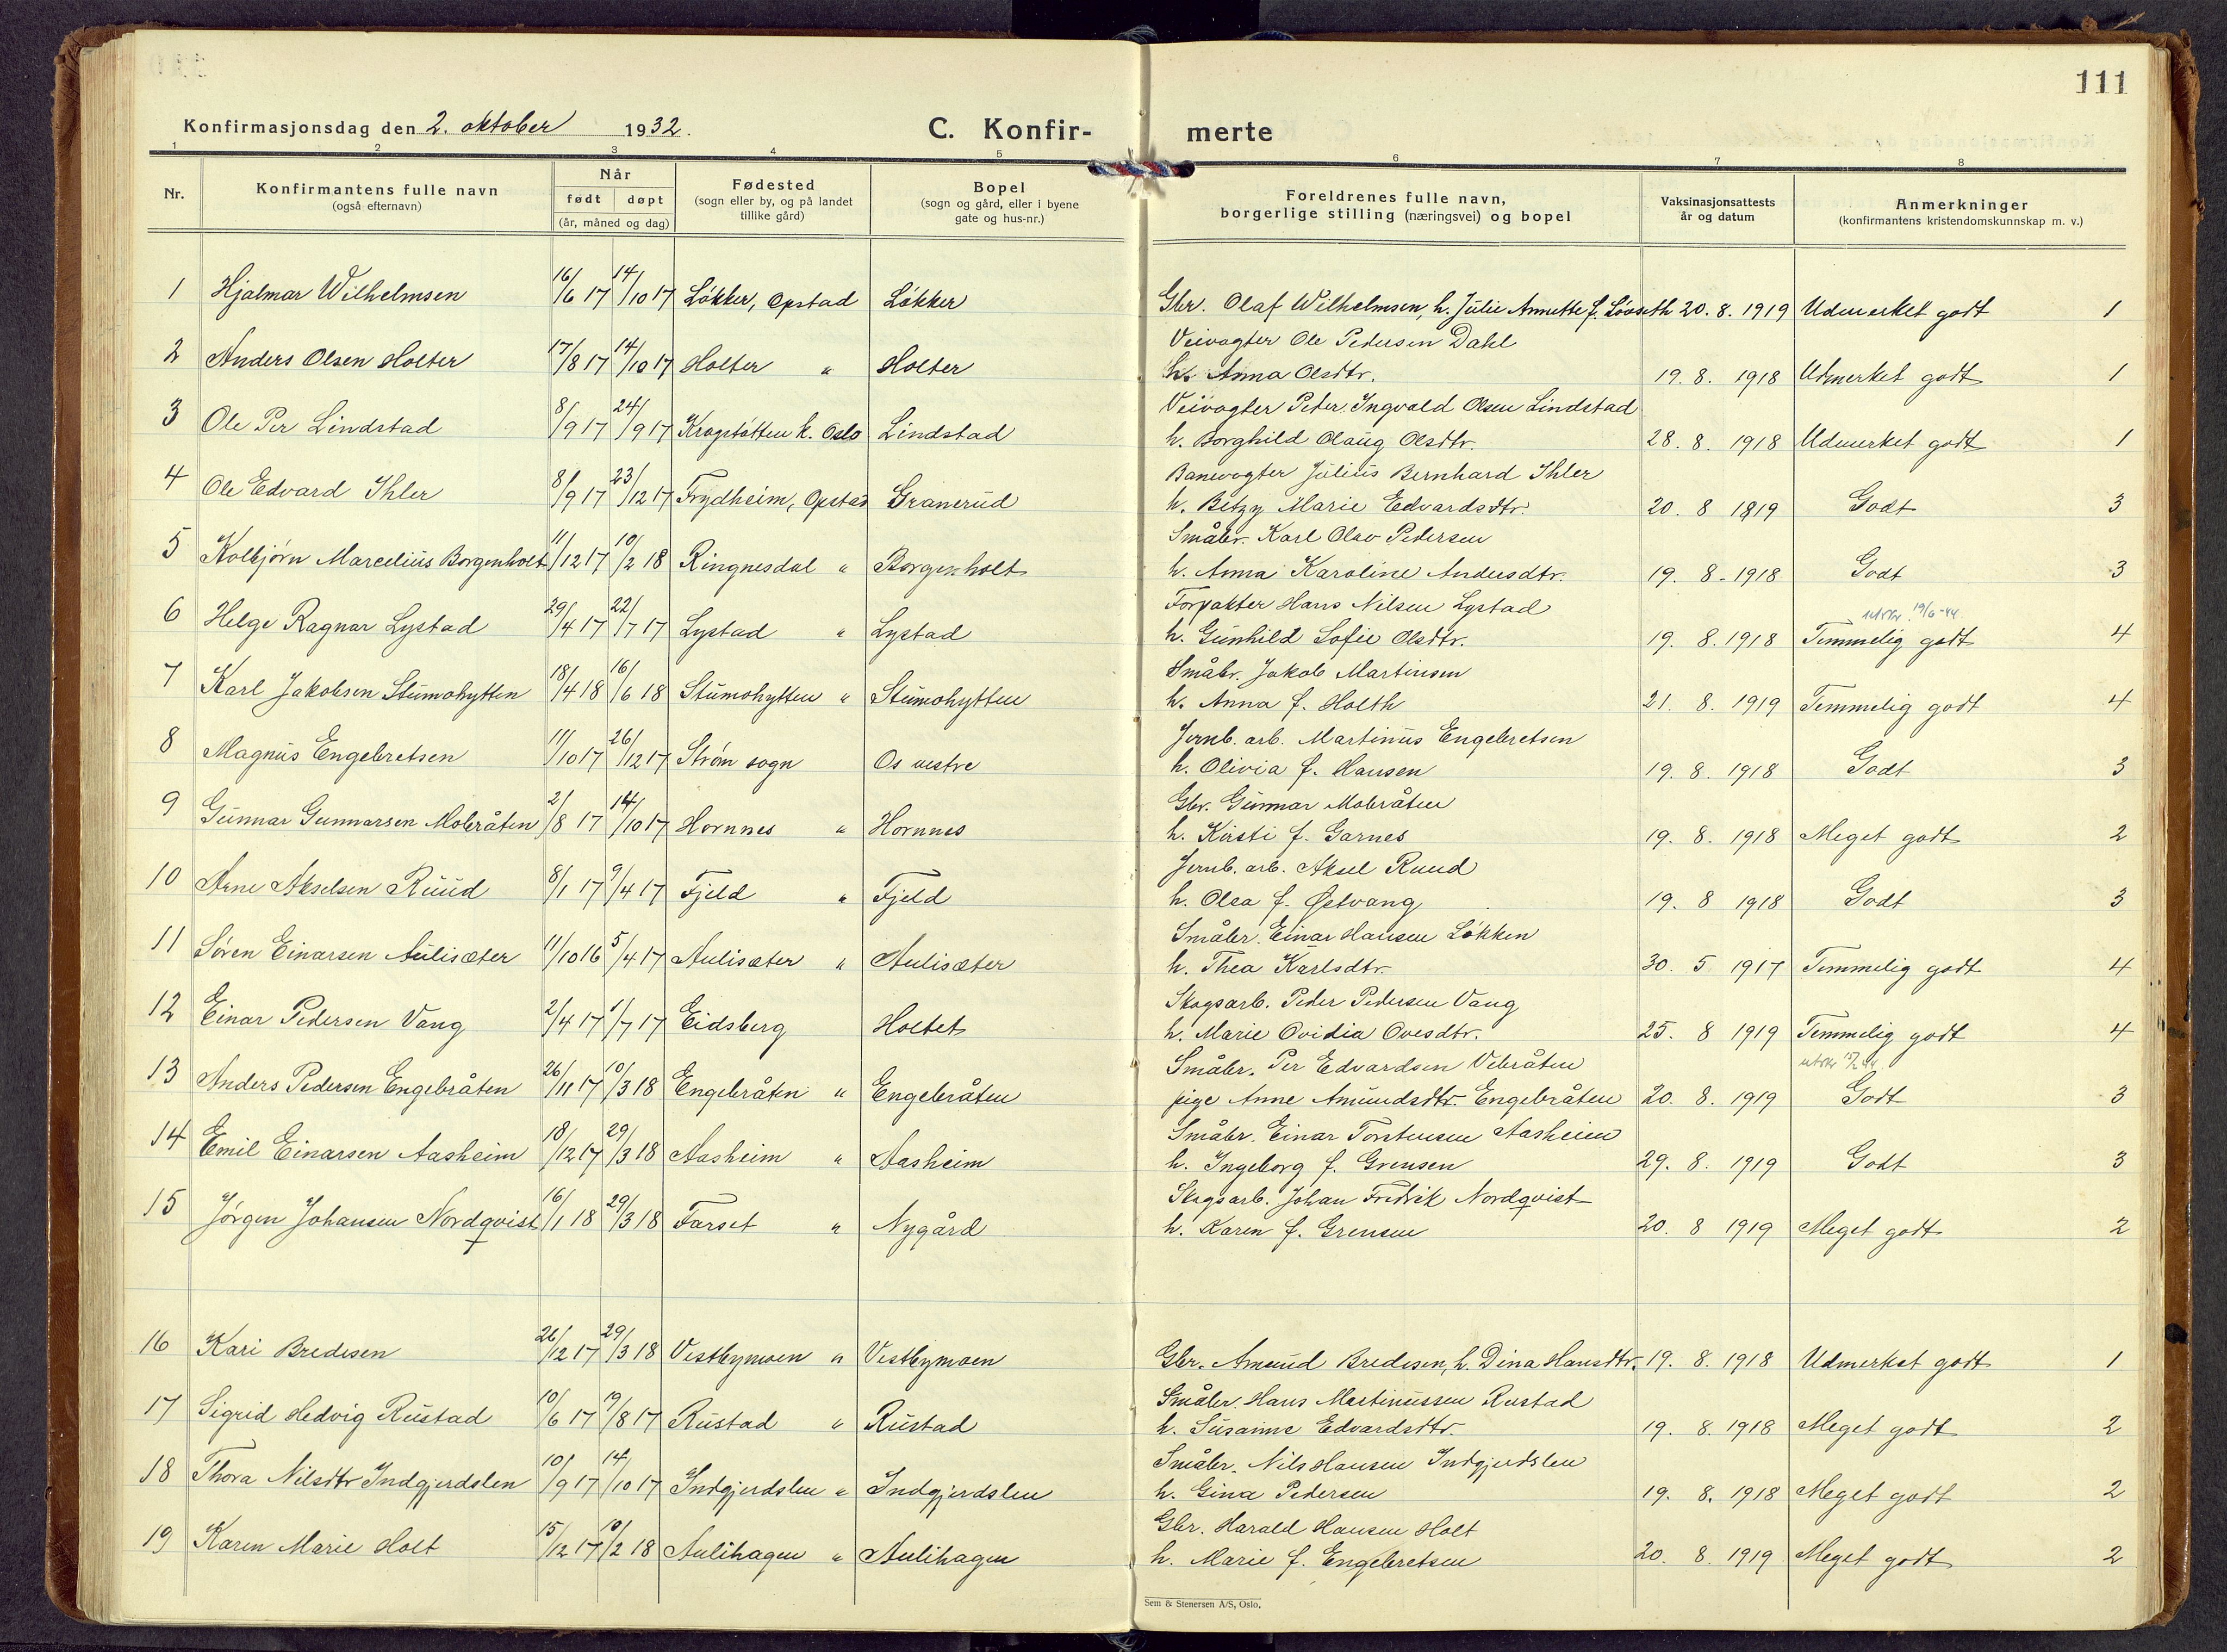 111
Konfirmasjonsdag den 2. oktober 1932.
C. Konfir- merte
1 2 3 4 5 6 7 8
Nr.
Konfirmantens fulle navn
(også efternavn)
Når
født døpt
(år, måned og dag)
Fødested
(sogn eller by, og på landet
tillike gård)
Bopel
(sogn og gård, eller i byene
gate og hus-nr.)
Foreldrenes fulle navn,
borgerlige stilling (næringsvei) og bopel
Vaksinasjonsattests
år og datum
Anmerkninger
(konfirmantens kristendomskunnskap m. v.)
1 Hjalmar Wilhelmsen 16/6 17 14/10 17 Løkker, Opstad Løkker Gbr. Olaf Wilhelmsen, h. Julie Annette f. Løvseth 20. 8. 1919 Udmerket godt 1
Veivogter Ole Pedersen Dahl
2 Anders Olsen Holter 17/8 17 14/10 17 Holter " Holter h. Anna Olsdtr. 19. 8. 1918 Udmerket godt 1
Veivogter Peter Ingvald Olsen Lindstad
3 Ole Per Lindstad 8/9 17 24/9 17 Kragstøtten k. Oslo Lindstad h. Borghild Olaug Olsdtr. 28. 8. 1918 Udmerket godt 1
Banevogter Julius Bernhard Ihler
4 Ole Edvard Ihler 8/9 17 23/12 17 Frydheim, Opstad Granerud h. Betzy Marie Edvardsdtr. 20. 8 1919 Godt 3
Småbr. Karl Olav Pedersen
5 Kolbjørn Marcelius Borgenholt 11/12 17 10/2 18 Ringnesdal " Borgenholt h. Anna Karoline Andersdtr. 19. 8. 1918 Godt 3
Forpakter Hans Nilsen Lystad 19/6-44
6 Helge Ragnar Lystad 29/4 17 22/7 17 Lystad " Lystad h. Gunhild Sofie Olsdtr. 19. 8. 1918 Temmelig godt 4
Småbr. Jakob Martinsen
7 Karl Jakobsen Stumohytten 18/4 18 16/6 18 Stumohytten " Stumohytten h. Anna f. Holth 21. 8. 1919 Temmelig godt 4
Jernb. arb. Martinus Engebretsen
8 Magnus Engebretsen 11/10 17 26/12 17 Strøm sogn Os vestre h. Olivia f. Hansen 19. 8. 1918 Godt 3
Gbr. Gunnar Mobråten
9 Gunnar Gunnarsen Mobråten 2/8 17 14/10 17 Hornnes " Hornnes h. Kirsti f. Garnes 19. 8. 1918 Meget godt 2
Jernb. arb. Aksel Ruud
10 Arne Akselsen Ruud 8/1 17 9/4 17 Fjeld " Fjeld h. Olea f. Østvang 19. 8 1918 Godt 3
Småbr. Einar Hansen Løkken
11 Søren Einarsen Aulisæter 11/10 16 5/4 17 Aulisæter " Aulisæter h. Thea Karlsdtr. 30. 5 1917 Temmelig godt 4
Skogsarb. Peder Pedersen Vang
12 Einar Pedersen Vang 2/4 17 1/7 17 Eidsberg Holtet h. Marie Ovidia Ovesdtr. 25. 8 1919 Temmelig godt 4
Småbr. Per Edvardsen Vebråten
13 Anders Pedersen Engebråten 26/11 17 10/3 18 Engebråten " Engebråten pige Anne Amundsdtr. Engebråten 20. 8. 1919 Godt 3
Småbr. Einar Torstensen Aasheim
14 Emil Einarsen Aasheim 18/12 17 29/3 18 Aasheim " Aasheim h. Ingeborg f. Grensen 29. 8. 1919 Godt 3
Skogsarb. Johan Fredrik Nordqvist
15 Jørgen Johansen Nordqvist 16/1 18 29/3 18 Farset " Nygård h. Karen f. Grensen 20. 8 1919 Meget godt 2
16 Kari Bredesen 26/12 17 29/3 18 Vestbymoen " Vestbymoen Gbr. Amund Bredesen, h. Dina Hansdtr. 19. 8. 1918 Udmerket godt 1
Småbr. Hans Martinussen Rustad
17 Sigrid Hedvig Rustad 10/6 17 19/8 17 Rustad " Rustad h. Susanne Edvardsdtr. 19. 8. 1918 Meget godt 2
Småbr. Nils Hansen Indgjerdslen
18 Thora Nilsdtr Indgjerdslen 10/9 17 14/10 17 Indgjerdslen " Indgjerdslen h. Gina Pedersen 19. 8. 1918 Meget godt 2
Gbr. Harald Hansen Holt
19 Karen Marie Holt 15/12 17 10/2 18 Aulihagen " Aulihagen h. Marie f. Engebretsen 20. 8. 1919 Meget godt 2
Sem & Stenersen A/S, Oslo.